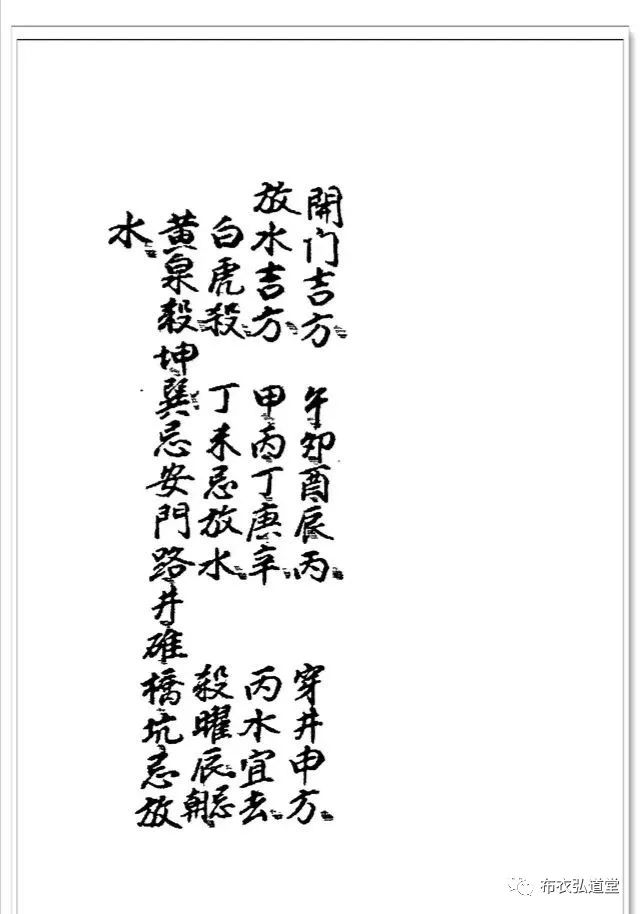 開门吉方 午卯酉辰丙 穿井申方
放水吉方 甲丙丁庚辛 丙水宜去
白虎殺 丁未忌放水 殺曜辰忌朝
黄泉殺坤巽忌安門路井碓橋坑忌放
水
布衣弘道堂